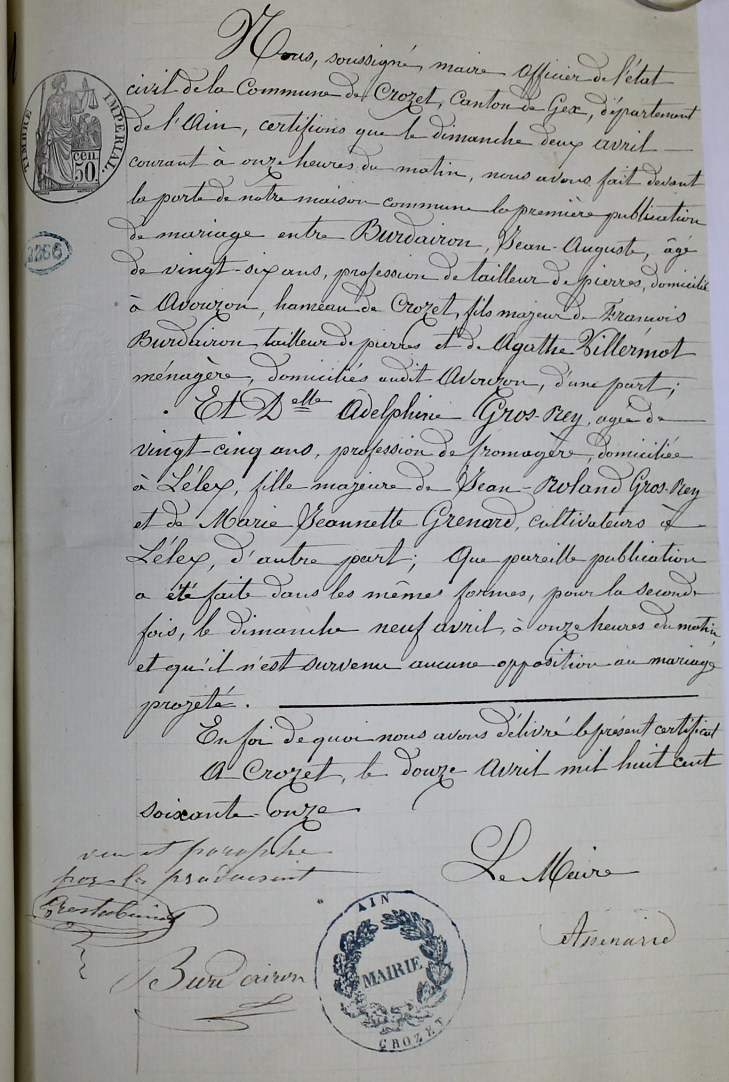 Nous, soussigné, maire officier de l'état
civil de la Commune de Crozet, Canton de Gex, département
de l'Ain, certifions que le dimanche deux avril
courant à onze heures du matin, nous avons fait devant
la porte de notre maison commune la première publication
de mariage entre Burdairon, Jean-Auguste, âgé
de vingt-six ans, profession de tailleur de pierres, domicilié
à Avouzon, hameau de Crozet, fils majeur de Francois
Burdairon tailleur de pierres et de Agathe Villermot
ménagère, domiciliés audit Avouzon, d'une part ;
Et Delle Adelphine Gros-Rey, agée de
vingt-cinq ans, profession de fromagère, domiciliée
à Lélex, fille majeure de Jean-Roland Gros-Rey
et de Marie Jeannette Grenard, cultivateurs à
Lélex, d'autre part ; Que pareille publication
a été faite dans les mêmes formes, pour la seconde
fois, le dimanche neuf avril, à onze heures du matin
et qu'il n'est survenu aucune opposition au mariage
projeté.
En foi de quoi nous avons délivré le présent certificat
A Crozet, le douze Avril mil huit cent
soixante-onze
Le Maire
vu et paraphé
par le produisant
Burdairon
TIMBRE IMPERIAL
50 CEN.
2266
AIN
MAIRIE
CROZET